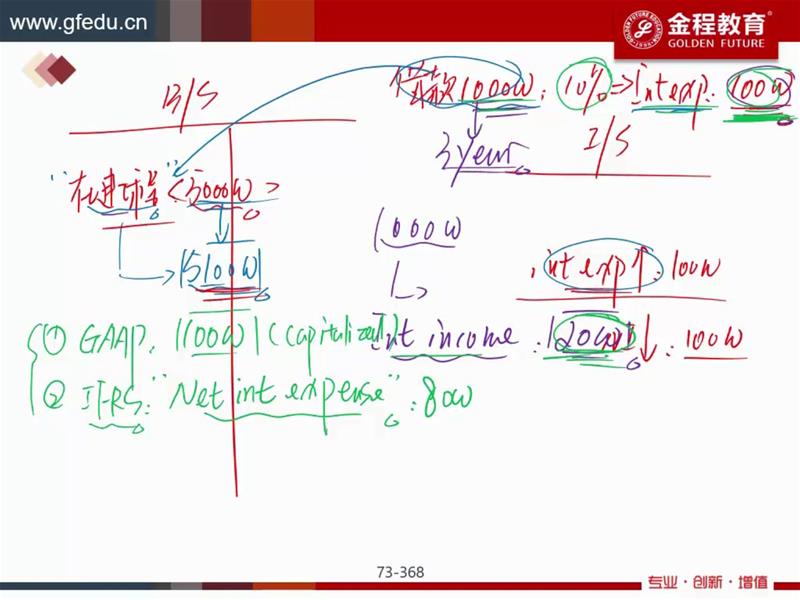 www.gfedu.cn
金程教育
GOLDEN FUTURE
B/S
借款1000W: 10% => int exp: 100W
3 year
I/S
"在建工程" <5000W>
5100W
1000W
int exp↑: 100W
① GAAP: 100W (capitalized)
int income: 20W ↓: 100W
② IFRS: "Net int expense": 80W
73-368
专业·创新·增值